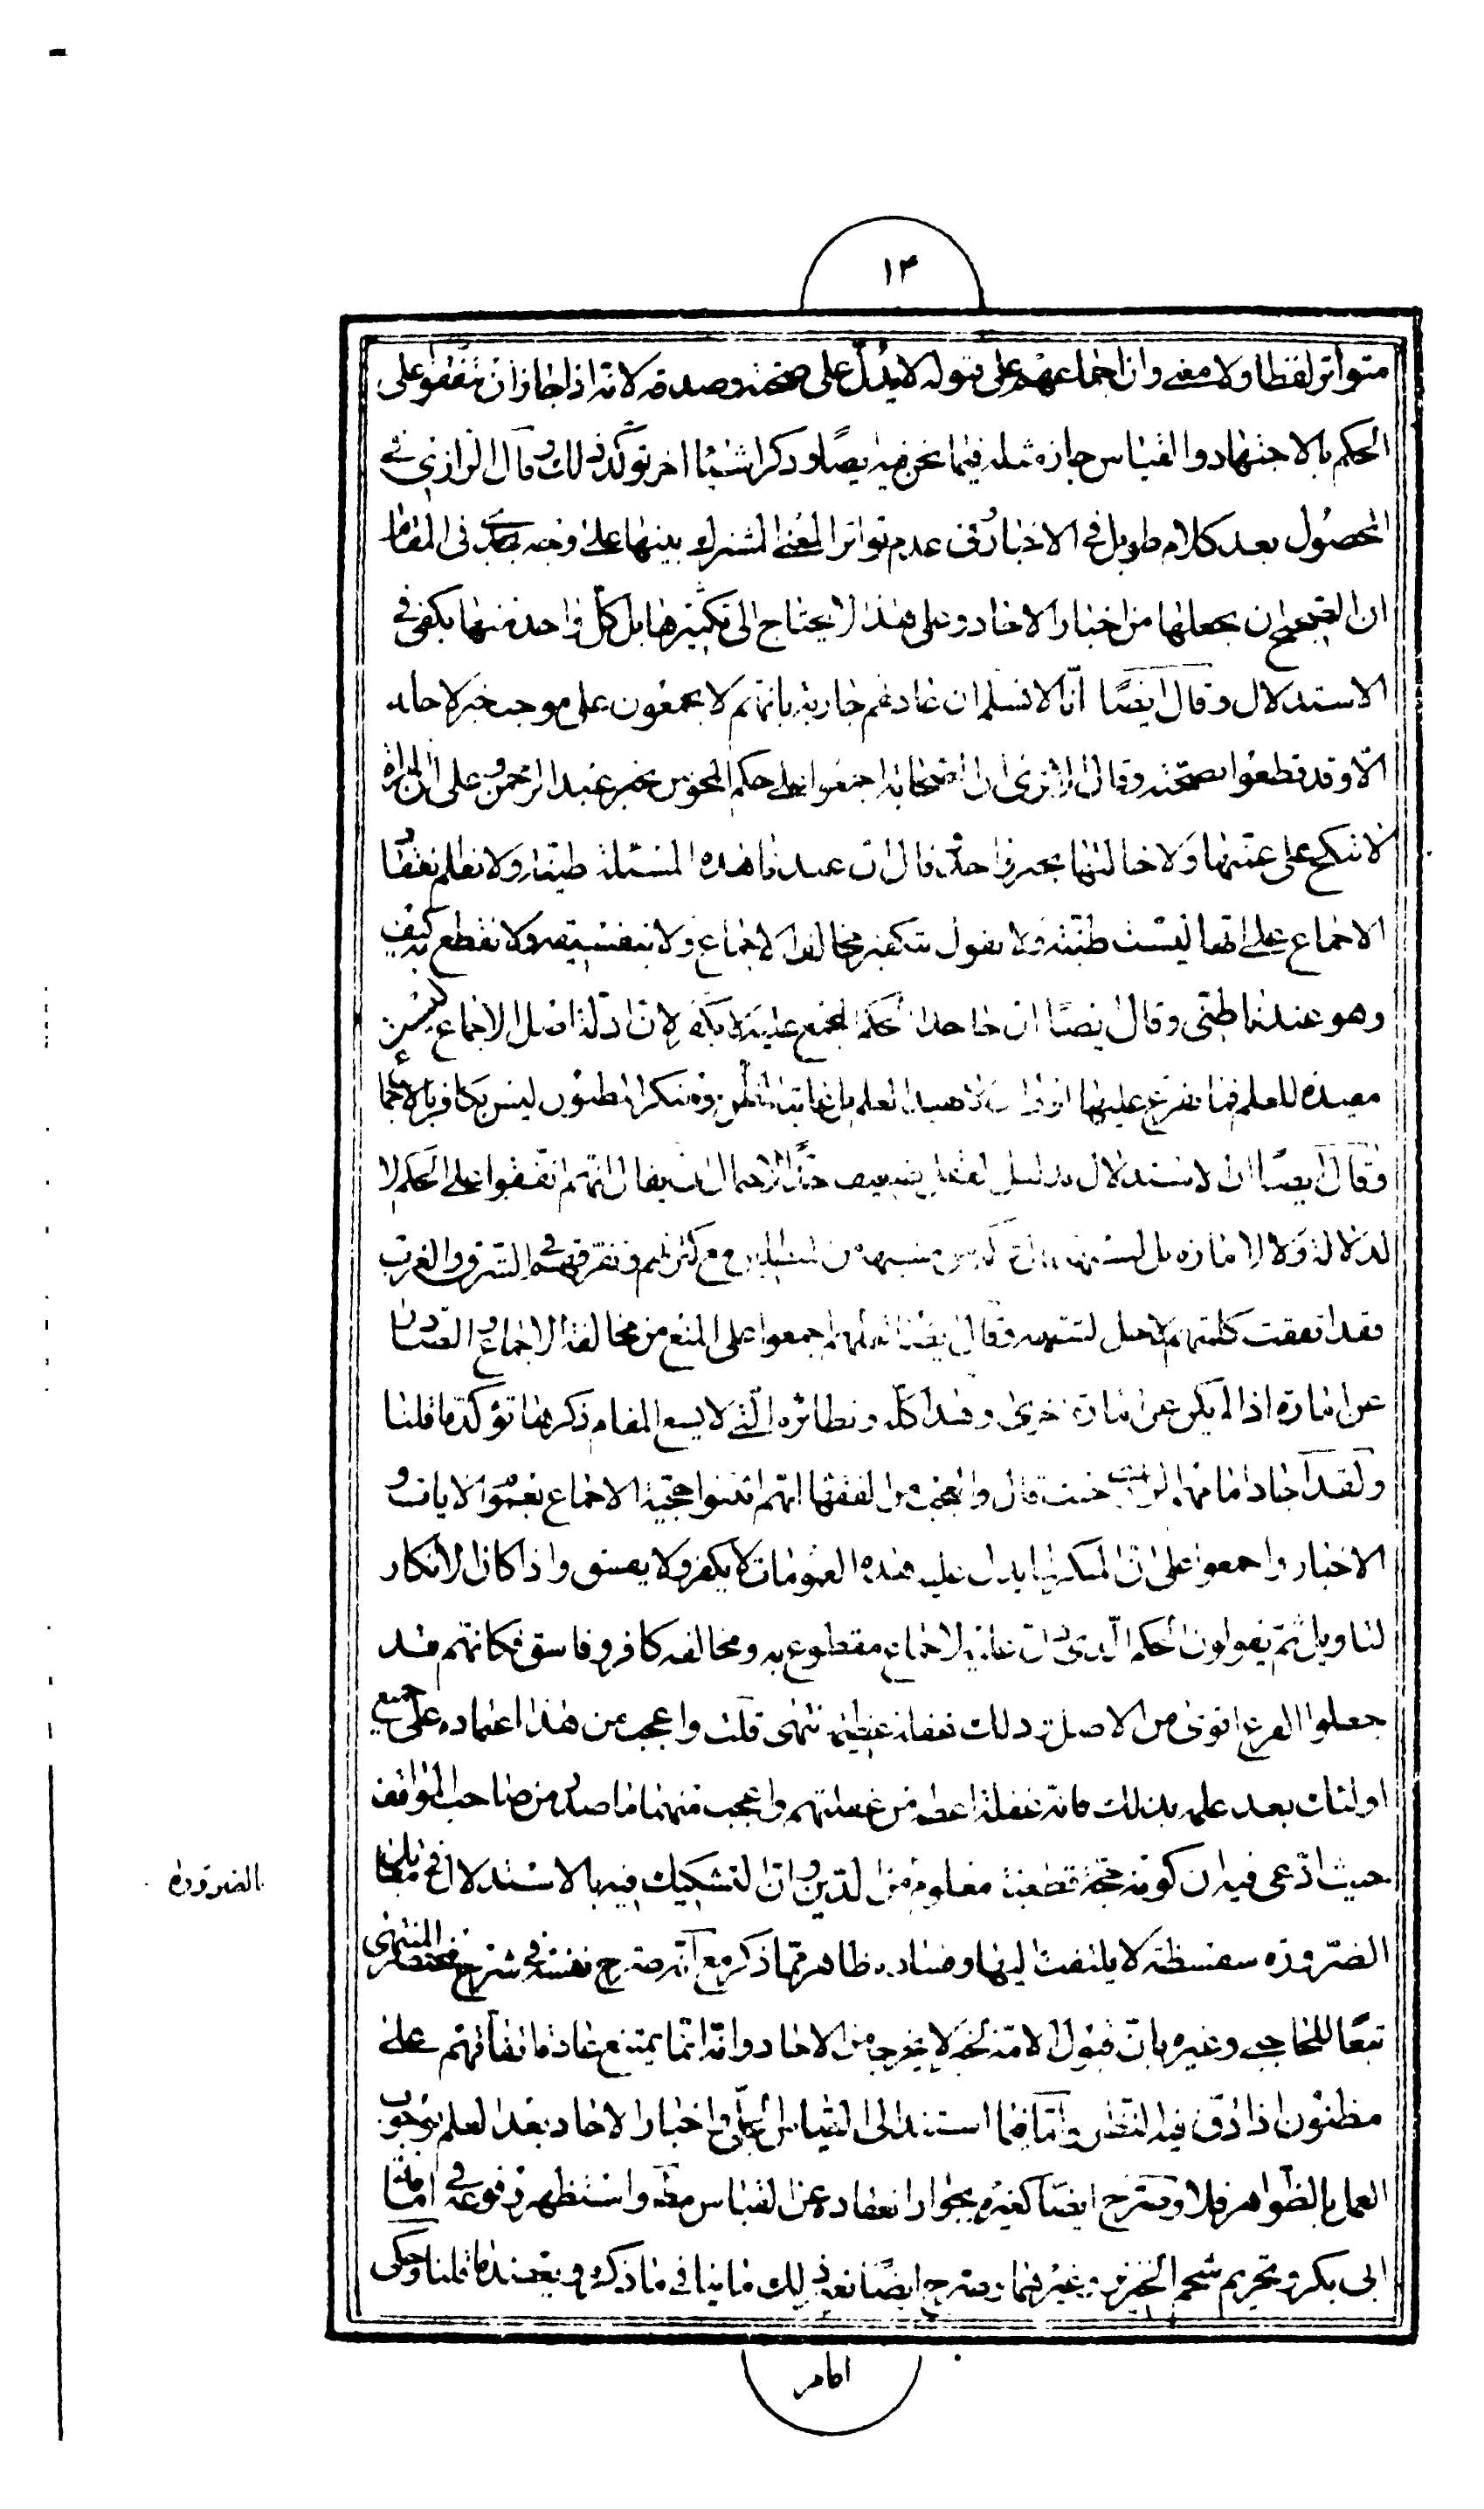 ١٣
متواتر لفظا ولا معنى وان اجماعهم على قبوله لا يدل على صحته وصدقه لانه اذا جاز ان يتفقوا على
الحكم بالاجتهاد والقياس جاز مثله فيما نحن فيه ايضًا وذكر اشياء اخر تؤكد ذلك وقال الرازي في
المحصول بعد كلام طويل في الاخبار في عدم تواتر المعنى المشترك بينها على وجه في المقام
ان الصحيح ان يجعلها من اخبار الاحاد وعلى هذا لا يحتاج الى تكثيرها بل كل واحد منها يكفى في
الاستدلال وقال ايضًا انّا لا نسلم ان عادتهم جارية بانهم لا يجمعون على موجب خبر لاجله
الّا وقد قطعوا بصحته وقال الرازى ان الصحابة اجمعوا على حكم المجوس بخبر عبد الرحمن وعلى ان المراة
لا تنكح على عمتها ولا خالتها بخبر واحد قال ان عندنا هذه المسئلة ظنية ولا نعلم انعقاد
الاجماع على انها ليست ظنية ولا نقول بتكفير مخالف الاجماع ولا بتفسيقه ولا نقطع به كيف
وهو عندنا ظنى وقال ايضًا ان جاحد الحكم المجمع عليه لا يكفر لان ادلة اصل الاجماع ليست
مفيدة للعلم فما تفرع عليها اولى ان لا يفيد العلم بل غايته الظن ومنكر المظنون ليس بكافر بالاجماع
وقال ايضًا ان الاستدلال بدليل العقل ضعيف لاحتمال ان يقال انهم اتفقوا على الحكم لا
لدلالة ولا لامارة بل لشبهة مع كثرتهم وتفرقهم في الشرق والغرب
فقد اتفقت كلمتهم لاجل الشبهة وقال ايضا انهم اجمعوا على المنع من مخالفة الاجماع الصادر
عن امارة اذا لم يكن عن امارة اخرى وهذا كلّه ونظائره الّتى لا يسع المقام ذكرها تؤكد ما قلنا
ولقد اجاد امامهم الرازي حيث قال والعجب من الفقهاء انهم اثبتوا حجية الاجماع بعموم الايات و
الاخبار واجمعوا على ان المنكر لما يدل عليه هذه العمومات لا يكفر ولا يفسق واذا كان الانكار
لتاويل ثم يقولون الحكم الّذى دل عليه الاجماع مقطوع به ومخالفه كافر وفاسق فكانهم قد
جعلوا الفرع اقوى من الاصل وذلك غفلة عظيمة انتهى قلت واعجب من هذا اعتماده على جميع
اولئك بعد علمه بذلك فانه غفلة اعظم من غفلتهم واعجب منهما ما صدر من صاحب المواقف
حيث ادّعى فيه ان كونه حجة قطعية معلوم من الدّين وان التشكيك فيه بالاستدلال في مقابل
الضرورة
الضّرورة سفسطة لا يلتفت اليها وفساده ظاهر ممّا ذكر مع انّه صرّح نفسه في شرح مختصر المنتهى
تبعًا للحاجبى وغيره بان قبول الامة لخبر لا يخرجه من الاحاد وانه انّما يمتنع عادة اتفاقهم على
مظنون اذا دق فيه النظر وامّا فيما استند الى القياس الجلى واخبار الاحاد بعد العلم بوجوب
العمل بالظّواهر فلا وصرّح ايضًا كغيره بجواز انعقاده عن القياس مطلقا واستظهر وقوعه في امامة
ابى بكر وتحريم شحم الخنزير وغيرهما وصرح ايضًا بعد ذلك ما ينافى ما ذكره ويعضد ما قلنا وحكى
امام